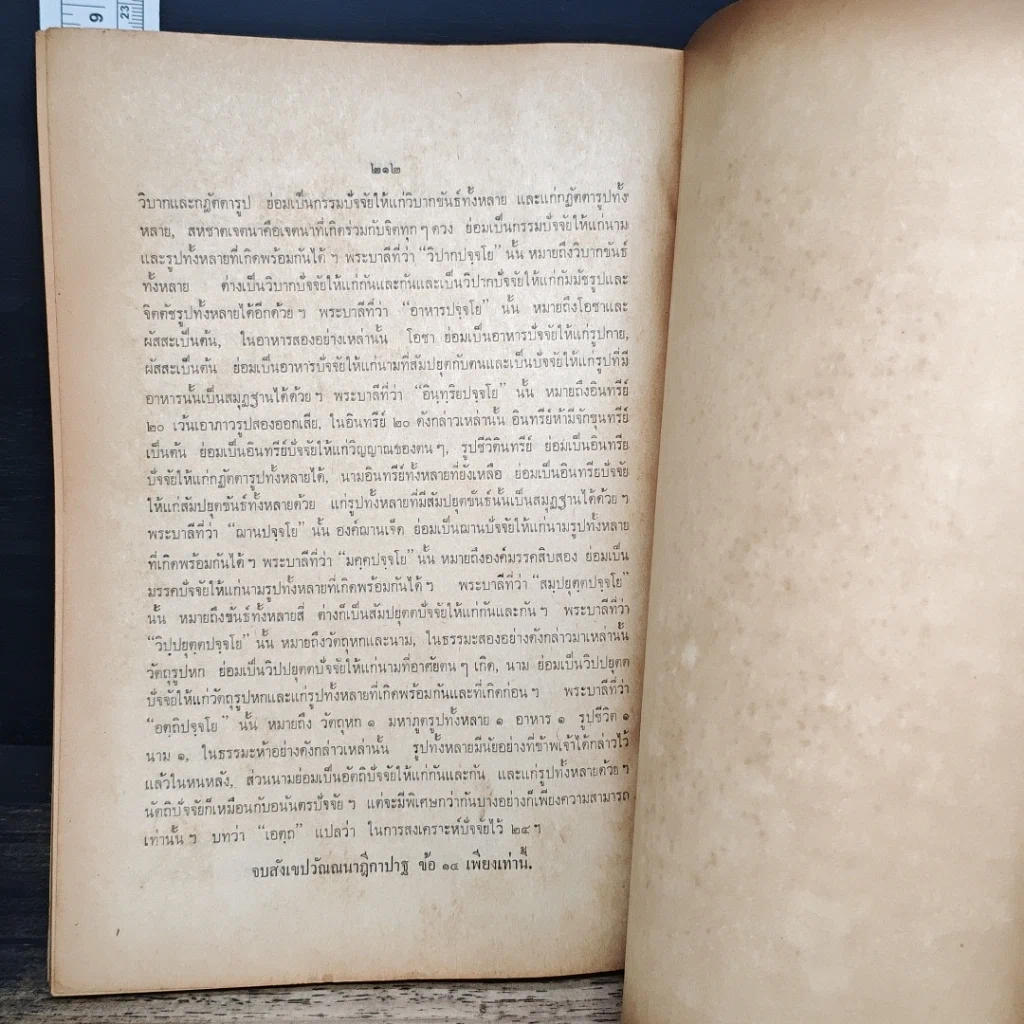 9
23
๒๑๒
วิบากและกฏัตตารูป ย่อมเป็นกรรมปัจจัยให้แก่วิบากขันธ์ทั้งหลาย และแก่กฏัตตารูปทั้ง
หลาย, สหชาตเจตนาคือเจตนาที่เกิดร่วมกับจิตทุก ๆ ดวง ย่อมเป็นกรรมปัจจัยให้แก่นาม
และรูปทั้งหลายที่เกิดพร้อมกันได้ ฯ พระบาลีที่ว่า “วิปากปจฺจโย” นั้น หมายถึงวิบากขันธ์
ทั้งหลาย ต่างเป็นวิบากปัจจัยให้แก่กันและกันและเป็นวิปากปัจจัยให้แก่กัมมัชรูปและ
จิตตัชรูปทั้งหลายได้อีกด้วย ฯ พระบาลีที่ว่า “อาหารปจฺจโย” นั้น หมายถึงโอชาและ
ผัสสะเป็นต้น, ในอาหารสองอย่างเหล่านั้น โอชา ย่อมเป็นอาหารปัจจัยให้แก่รูปกาย,
ผัสสะเป็นต้น ย่อมเป็นอาหารปัจจัยให้แก่นามที่สัมปยุตกับตนและเป็นปัจจัยให้แก่รูปที่มี
อาหารนั้นเป็นสมุฏฐานได้ด้วย ฯ พระบาลีที่ว่า “อินฺทฺริยปจฺจโย” นั้น หมายถึงอินทรีย์
๒๐ เว้นเอาภาวรูปสองออกเสีย, ในอินทรีย์ ๒๐ ดังกล่าวเหล่านั้น อินทรีย์ห้ามีจักขุนทรีย์
เป็นต้น ย่อมเป็นอินทรีย์ปัจจัยให้แก่วิญญาณของตน ๆ, รูปชีวิตินทรีย์ ย่อมเป็นอินทรีย
ปัจจัยให้แก่กฏัตตารูปทั้งหลายได้, นามอินทรีย์ทั้งหลายที่ยังเหลือ ย่อมเป็นอินทรียปัจจัย
ให้แก่สัมปยุตขันธ์ทั้งหลายด้วย แก่รูปทั้งหลายที่มีสัมปยุตขันธ์นั้นเป็นสมุฏฐานได้ด้วย ฯ
พระบาลีที่ว่า “ฌานปจฺจโย” นั้น องค์ฌานเจ็ด ย่อมเป็นฌานปัจจัยให้แก่นามรูปทั้งหลาย
ที่เกิดพร้อมกันได้ ฯ พระบาลีที่ว่า “มคฺคปจฺจโย” นั้น หมายถึงองค์มรรคสิบสอง ย่อมเป็น
มรรคปัจจัยให้แก่นามรูปทั้งหลายที่เกิดพร้อมกันได้ ฯ พระบาลีที่ว่า “สมฺปยุตฺตปจฺจโย”
นั้น หมายถึงขันธ์ทั้งหลายสี่ ต่างก็เป็นสัมปยุตตปัจจัยให้แก่กันและกัน ฯ พระบาลีที่ว่า
“วิปฺปยุตฺตปจฺจโย” นั้น หมายถึงวัตถุหกและนาม, ในธรรมะสองอย่างดังกล่าวมาเหล่านั้น
วัตถุรูปหก ย่อมเป็นวิปปยุตตปัจจัยให้แก่นามที่อาศัยตน ๆ เกิด, นาม ย่อมเป็นวิปปยุตต
ปัจจัยให้แก่วัตถุรูปหกและแก่รูปทั้งหลายที่เกิดพร้อมกันและที่เกิดก่อน ฯ พระบาลีที่ว่า
“อตฺถิปจฺจโย” นั้น หมายถึง วัตถุหก ๑ มหาภูตรูปทั้งหลาย ๑ อาหาร ๑ รูปชีวิต ๑
นาม ๑, ในธรรมะห้าอย่างดังกล่าวเหล่านั้น รูปทั้งหลายมีนัยอย่างที่ข้าพเจ้าได้กล่าวไว้
แล้วในหนหลัง, ส่วนนามย่อมเป็นอัตถิปัจจัยให้แก่กันและกัน และแก่รูปทั้งหลายด้วย ฯ
นัตถิปัจจัยก็เหมือนกับอนันตรปัจจัย ฯ แต่จะมีพิเศษกว่ากันบางอย่างก็เพียงความสามารถ
เท่านั้น ฯ บทว่า “เอตฺถ” แปลว่า ในการสงเคราะห์ปัจจัยไว้ ๒๔ ฯ
จบสังเขปวัณณนาฎีกาปาฐ ข้อ ๑๔ เพียงเท่านี้.